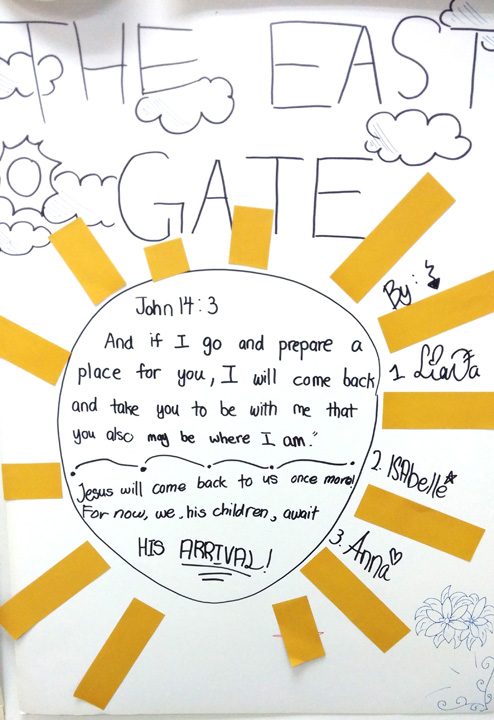 THE EAST
GATE
By:
John 14:3
And if I go and prepare a
place for you, I will come back
and take you to be with me that
you also may be where I am."
Jesus will come back to us once more!
For now, we, his children, await
HIS ARRIVAL!
1. LiaVa
2. ISAbelle
3. Anna